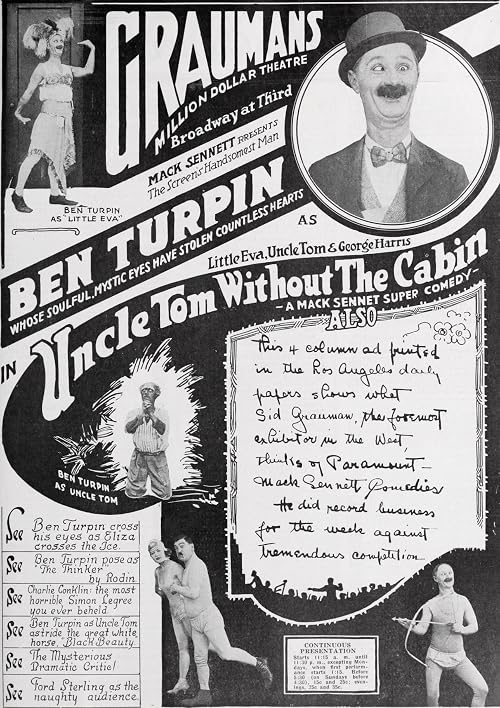 GRAUMANS
MILLION DOLLAR THEATRE
Broadway at Third
MACK SENNETT PRESENTS
The Screen's Handsomest Man
BEN TURPIN
AS "LITTLE EVA"
BEN TURPIN
WHOSE SOULFUL, MYSTIC EYES HAVE STOLEN COUNTLESS HEARTS
AS
Little Eva, Uncle Tom & George Harris
IN Uncle Tom Without The Cabin
- A MACK SENNET SUPER COMEDY -
ALSO
This 4 column ad printed
in the Los Angeles daily
papers shows what
Sid Grauman, the foremost
exhibitor in the West,
thinks of Paramount-
Mack Sennett Comedies
He did record business
for the week against
tremendous competition
BEN TURPIN
AS UNCLE TOM
See Ben Turpin cross
his eyes as Eliza
crosses the Ice.
See Ben Turpin pose as
"The Thinker"
by Rodin.
See Charlie Conklin: the most
horrible Simon Legree
you ever beheld
See Ben Turpin as Uncle Tom
astride the great white
horse, "Black Beauty"
See The Mysterious
Dramatic Critic!
See Ford Sterling as the
naughty audience.
CONTINUOUS
PRESENTATION
Starts 11:15 a. m. until
11:30 p. m., excepting Mon-
days, when first perform-
ance starts 1:15. Before
5:30 (on Sundays before
4:30), 15c and 25c; even-
ings, 25c and 35c.